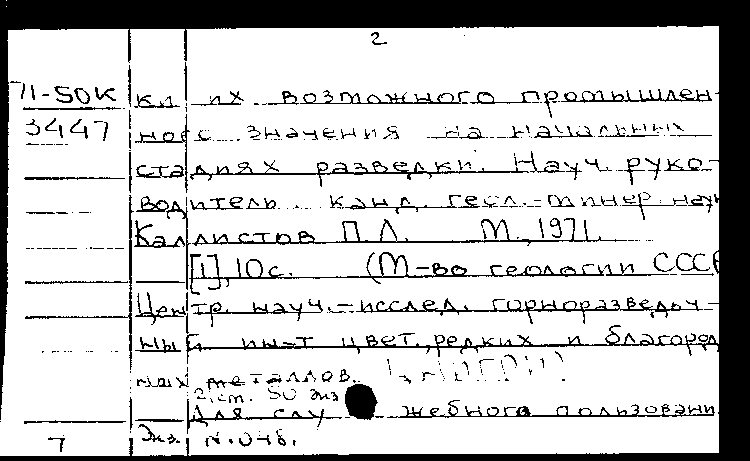 2
71-50К ки их возможного промышлен-
3447 ного значения на начальных
стадиях разведки. Науч. руко-
водитель канд. геол.-минер. наук
Каллистов П.Л. М., 1971.
[1], 10с. (М-во геологии СССР
Центр. науч.-исслед. горноразведоч-
ный ин-т цвет., редких и благород
ных металлов.
2, ст. 50 экз
Для служебного пользовани
7 Экз. N.048.